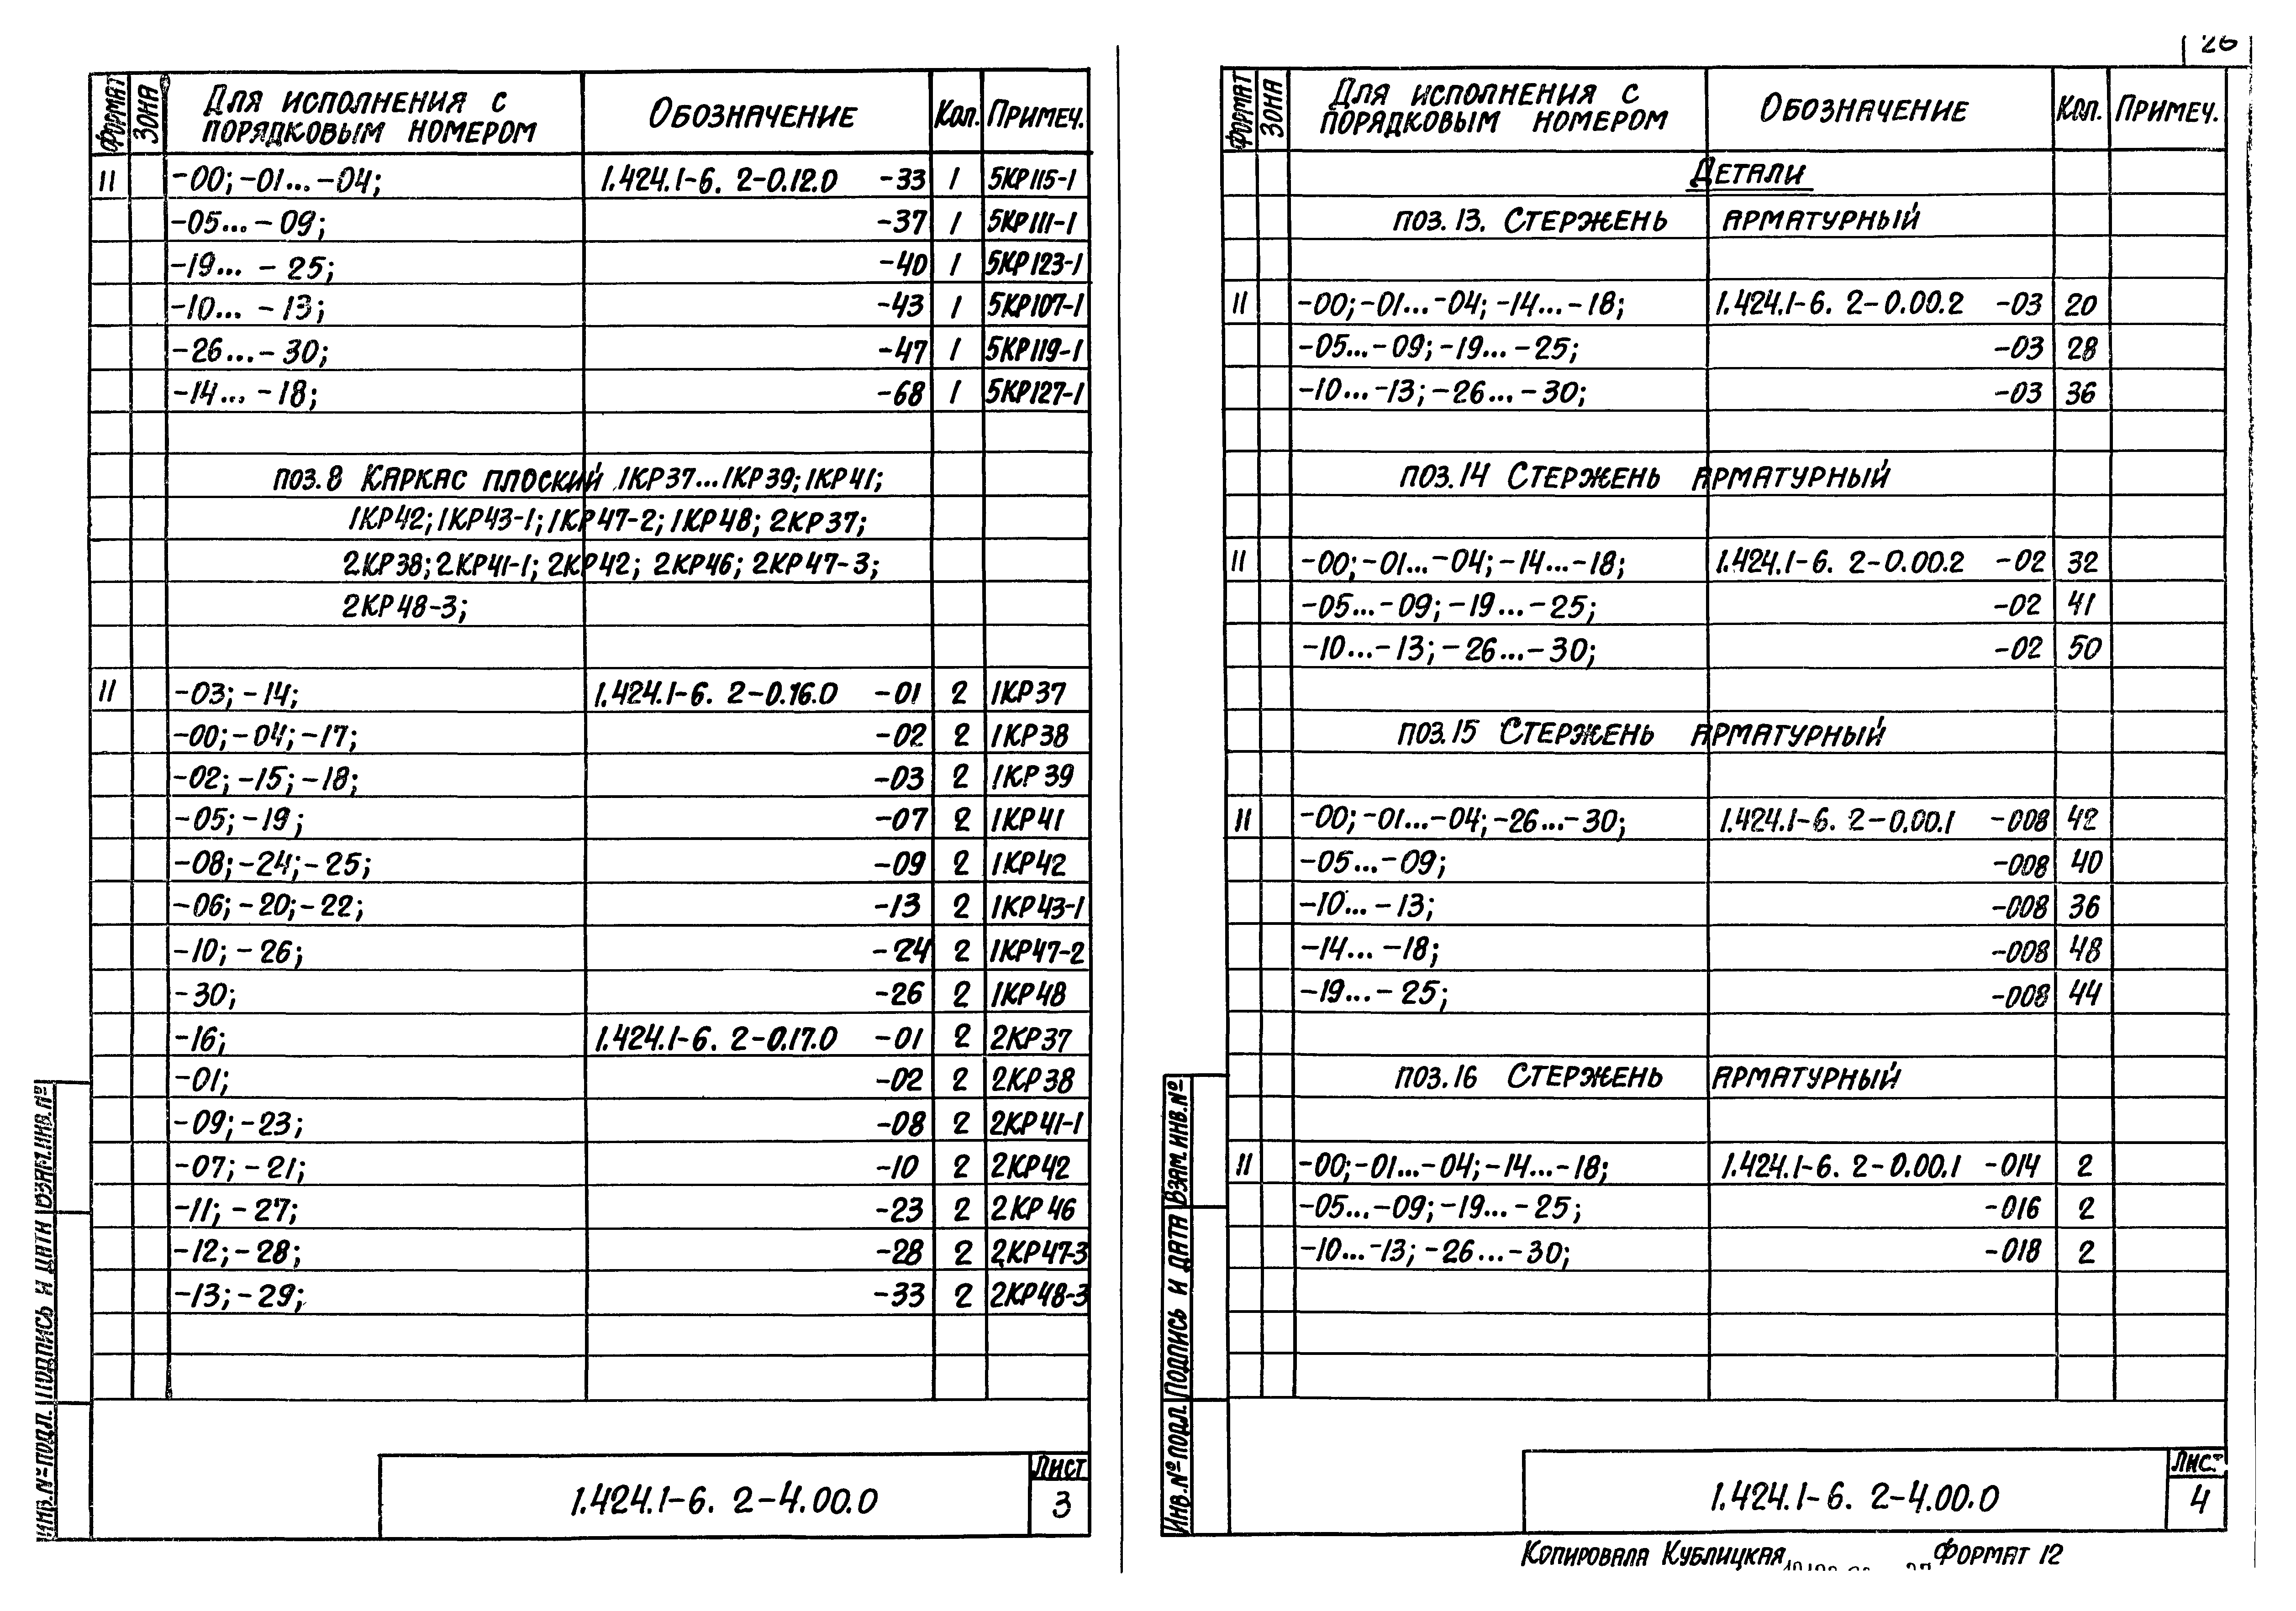 ФОРМАТ ЗОНА Для исполнения с порядковым номером Обозначение Кол. Примеч.
11 -00; -01... -04; 1.424.1-6. 2-0.12.0 -33 1 5КР115-1
-05... - 09; -37 1 5КР111-1
-19... - 25; -40 1 5КР123-1
-10... - 13; -43 1 5КР107-1
-26... - 30; -47 1 5КР119-1
-14... - 18; -68 1 5КР127-1
поз. 8 Каркас плоский 1КР37...1КР39; 1КР41;
1КР42; 1КР43-1; 1КР47-2; 1КР48; 2КР37;
2КР38; 2КР41-1; 2КР42; 2КР46; 2КР47-3;
2КР48-3;
11 -03; -14; 1.424.1-6. 2-0.16.0 -01 2 1КР37
-00; -04; -17; -02 2 1КР38
-02; -15; -18; -03 2 1КР39
-05; -19; -07 2 1КР41
-08; -24; -25; -09 2 1КР42
-06; -20; -22; -13 2 1КР43-1
-10; -26; -24 2 1КР47-2
-30; -26 2 1КР48
-16; 1.424.1-6. 2-0.17.0 -01 2 2КР37
-01; -02 2 2КР38
-09; -23; -08 2 2КР41-1
-07; -21; -10 2 2КР42
-11; -27; -23 2 2КР46
-12; -28; -28 2 2КР47-3
-13; -29; -33 2 2КР48-3
Инв. № подл. Подпись и дата Взам. инв. №
1.424.1-6. 2-4.00.0
Лист
3
26
ФОРМАТ ЗОНА Для исполнения с порядковым номером Обозначение Кол. Примеч.
Детали
поз. 13. Стержень арматурный
11 -00; -01... -04; -14... -18; 1.424.1-6. 2-0.00.2 -03 20
-05... -09; -19... -25; -03 28
-10... -13; -26... -30; -03 36
поз. 14 Стержень арматурный
11 -00; -01... -04; -14... -18; 1.424.1-6. 2-0.00.2 -02 32
-05... -09; -19... -25; -02 41
-10... -13; -26... -30; -02 50
поз. 15 Стержень арматурный
11 -00; -01... -04; -26... -30; 1.424.1-6. 2-0.00.1 -008 42
-05... -09; -008 40
-10... -13; -008 36
-14... -18; -008 48
-19... -25; -008 44
поз. 16 Стержень арматурный
11 -00; -01... -04; -14... -18; 1.424.1-6. 2-0.00.1 -014 2
-05... -09; -19... -25; -016 2
-10... -13; -26... -30; -018 2
Инв. № подл. Подпись и дата Взам. инв. №
1.424.1-6. 2-4.00.0
Лист
4
Копировала Кублицкая Формат 12